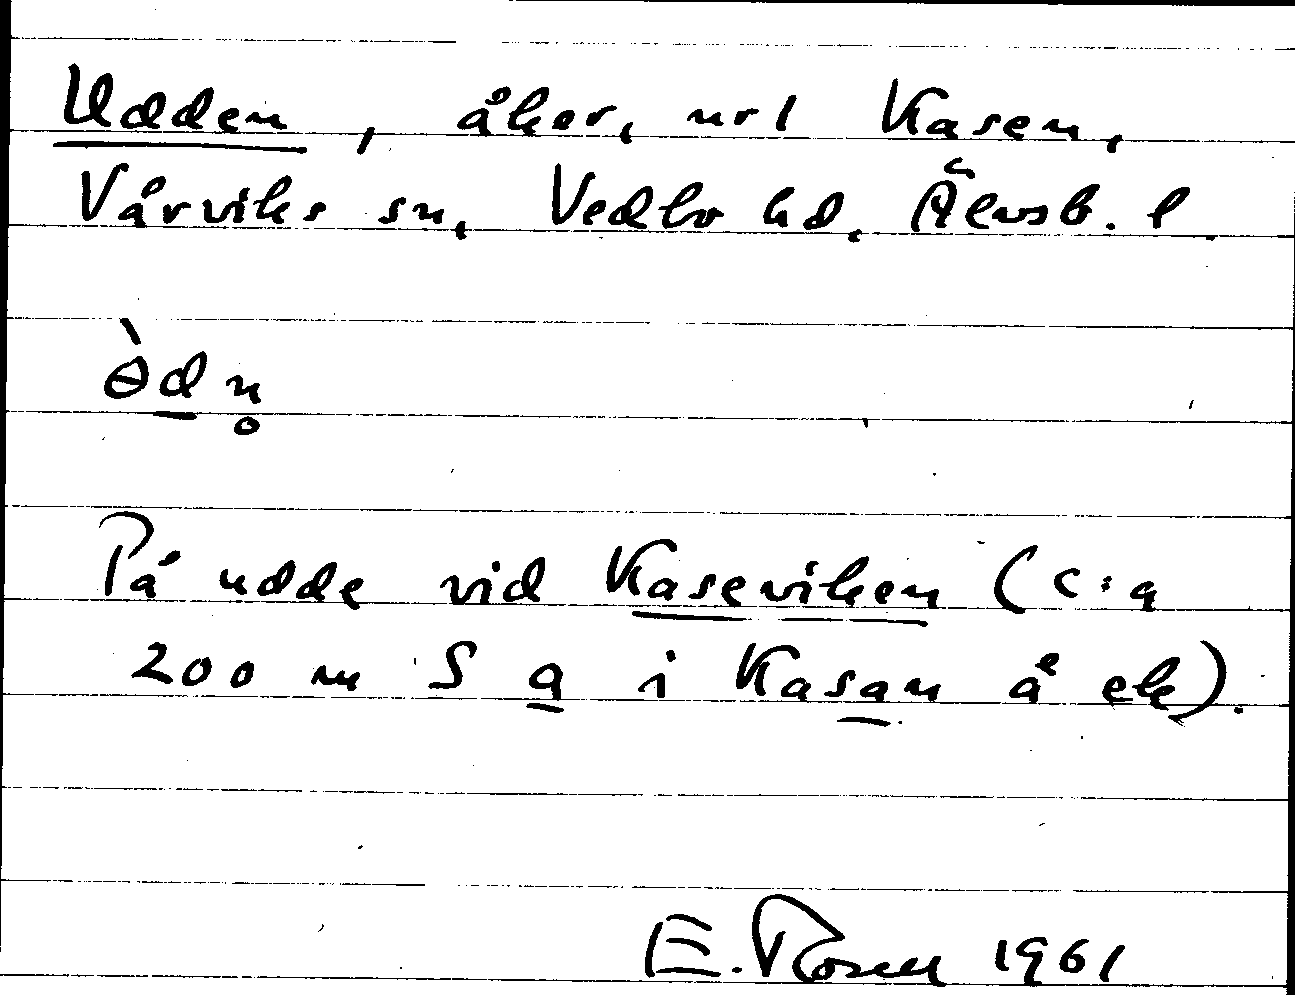 Udden, åker, nr 1 Kasen,
Vårviks sn, Vedbo hd, Älvsb. l.
ɵ̀dn̥
På udde vid Kaseviken (c:a
200 m S a i Kasan å ek).
E. Rosell 1961